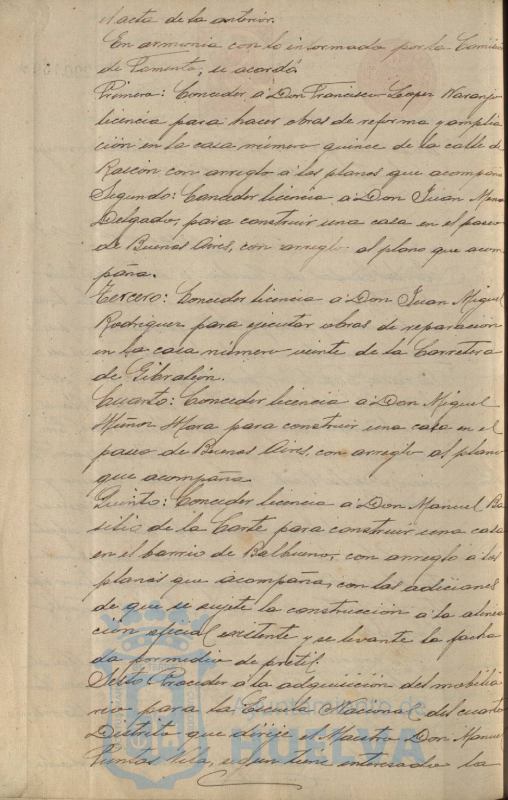 el acta de la anterior.
En armonia con lo informado por la Comision
de Fomento, se acordó.
Primero: Conceder á Don Francisco Lopez Naranjo
licencia para hacer obras de reforma y amplia
ción en la casa número quince de la calle de
Rascón con arreglo á los planos que acompaña
Segundo: Conceder licencia á Don Juan Mena
Delgado, para construir una casa en el paseo
de Buenos Aires, con arreglo al plano que acom
paña.
Tercero: Conceder licencia á Don Juan Miguel
Rodriguez para ejecutar obras de reparación
en la casa número veinte de la Carretera
de Gibraleón.
Cuarto: Conceder licencia á Don Miguel
Muñoz Mora para construir una casa en el
paseo de Buenos Aires, con arreglo al plano
que acompaña.
Quinto: Conceder licencia á Don Manuel Ba
silio de la Corte para construir una casa
en el barrio de Balbueno, con arreglo á los
planos que acompaña, con las adiciones
de que se sujete la construcción á la alinea
ción oficial existente y se levante la facha
da por medio de pretil.
Sexto Proceder á la adquisición del mobilia
rio para la Escuela Nacional del cuarto
Distrito que dirije el Maestro Don Manuel
Puntas Vela, segun tiene interesado la
Ayuntamiento de
HUELVA